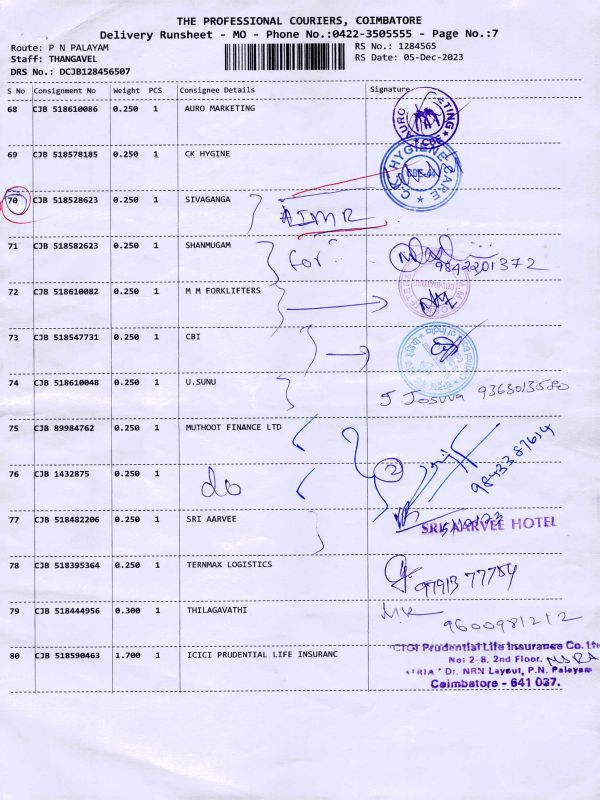 THE PROFESSIONAL COURIERS, COIMBATORE
Delivery Runsheet - MO - Phone No.:0422-3505555 - Page No.:7
Route: P N PALAYAM
RS No.: 1284565
Staff: THANGAVEL
RS Date: 05-Dec-2023
DRS No.: DCJB128456507
S No Consignment No Weight PCS Consignee Details Signature
68 CJB 518610086 0.250 1 AURO MARKETING
69 CJB 518578185 0.250 1 CK HYGINE
70 CJB 518528623 0.250 1 SIVAGANGA
AIMR
71 CJB 518582623 0.250 1 SHANMUGAM
for
9842201372
72 CJB 518610082 0.250 1 M M FORKLIFTERS
73 CJB 518547731 0.250 1 CBI
74 CJB 518610048 0.250 1 U.SUNU
J Josuva 9363013580
75 CJB 89984762 0.250 1 MUTHOOT FINANCE LTD
76 CJB 1432875 0.250 1
do
2
77 CJB 518482206 0.250 1 SRI AARVEE
SRI AARVEE HOTEL
78 CJB 518395364 0.250 1 TERNMAX LOGISTICS
97913 77784
79 CJB 518444956 0.300 1 THILAGAVATHI
M.K
9600981212
80 CJB 518590463 1.700 1 ICICI PRUDENTIAL LIFE INSURANC
ICICI Prudential Life Insurance Co. Ltd
No: 2-8, 2nd Floor,
"ATRIA" Dr. NRN Layout, P.N. Palayam
Coimbatore - 641 037.